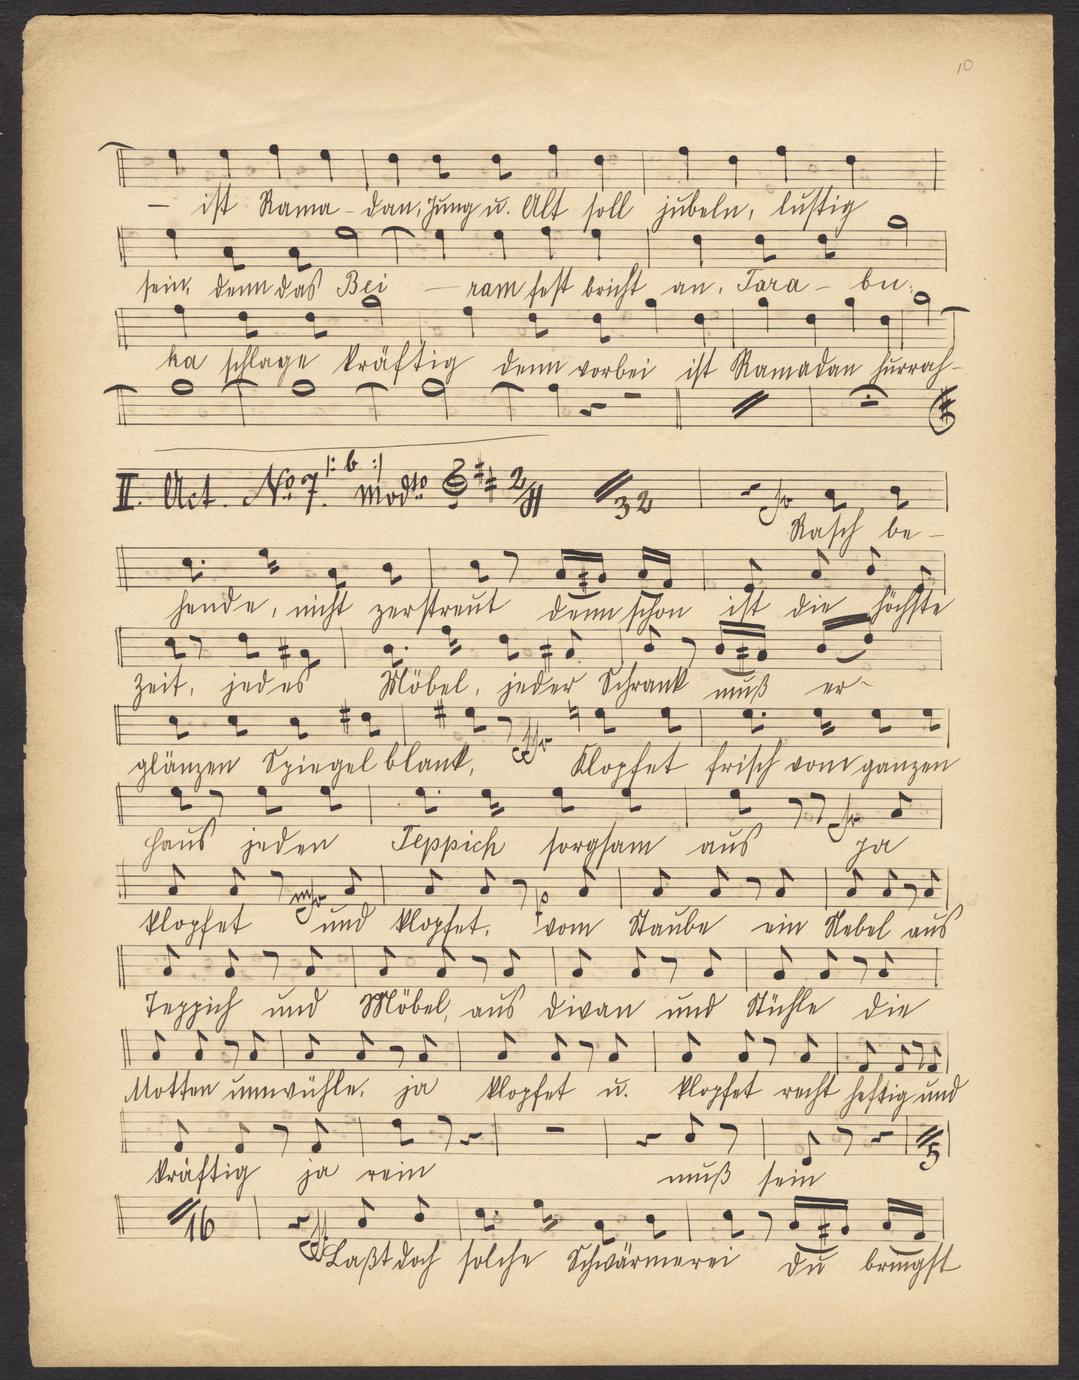 10
– ist Rama - dan, Jung u. Alt soll jubeln, lustig
sein, denn das Bei – ram fest bricht an. Tara - bu:
ka schlage kräftig denn vorbei ist Ramadan hurrah -
II. Act. No 7. |: b :| Modto 2/4 32
Rasch be -
hende, nicht zerstreut denn schon ist die höchste
Zeit, jedes Möbel, jeder Schrank muß er -
glänzen Spiegel blank, Klopfet frisch vom ganzen
Haus jeden Teppich sorgsam aus ja
klopfet mf und klopfet, p vom Staube ein Nebel aus
Teppich und Möbel, aus Divan und Stühle die
Motten umwühle, ja klopfet u. klopfet recht heftig und
kräftig ja rein muß sein 5
16
Laßt doch solche Schwärmerei du bringst